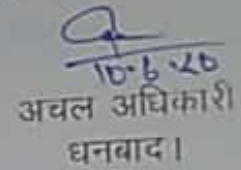 10-6-20
अचल अधिकारी
धनवाद।